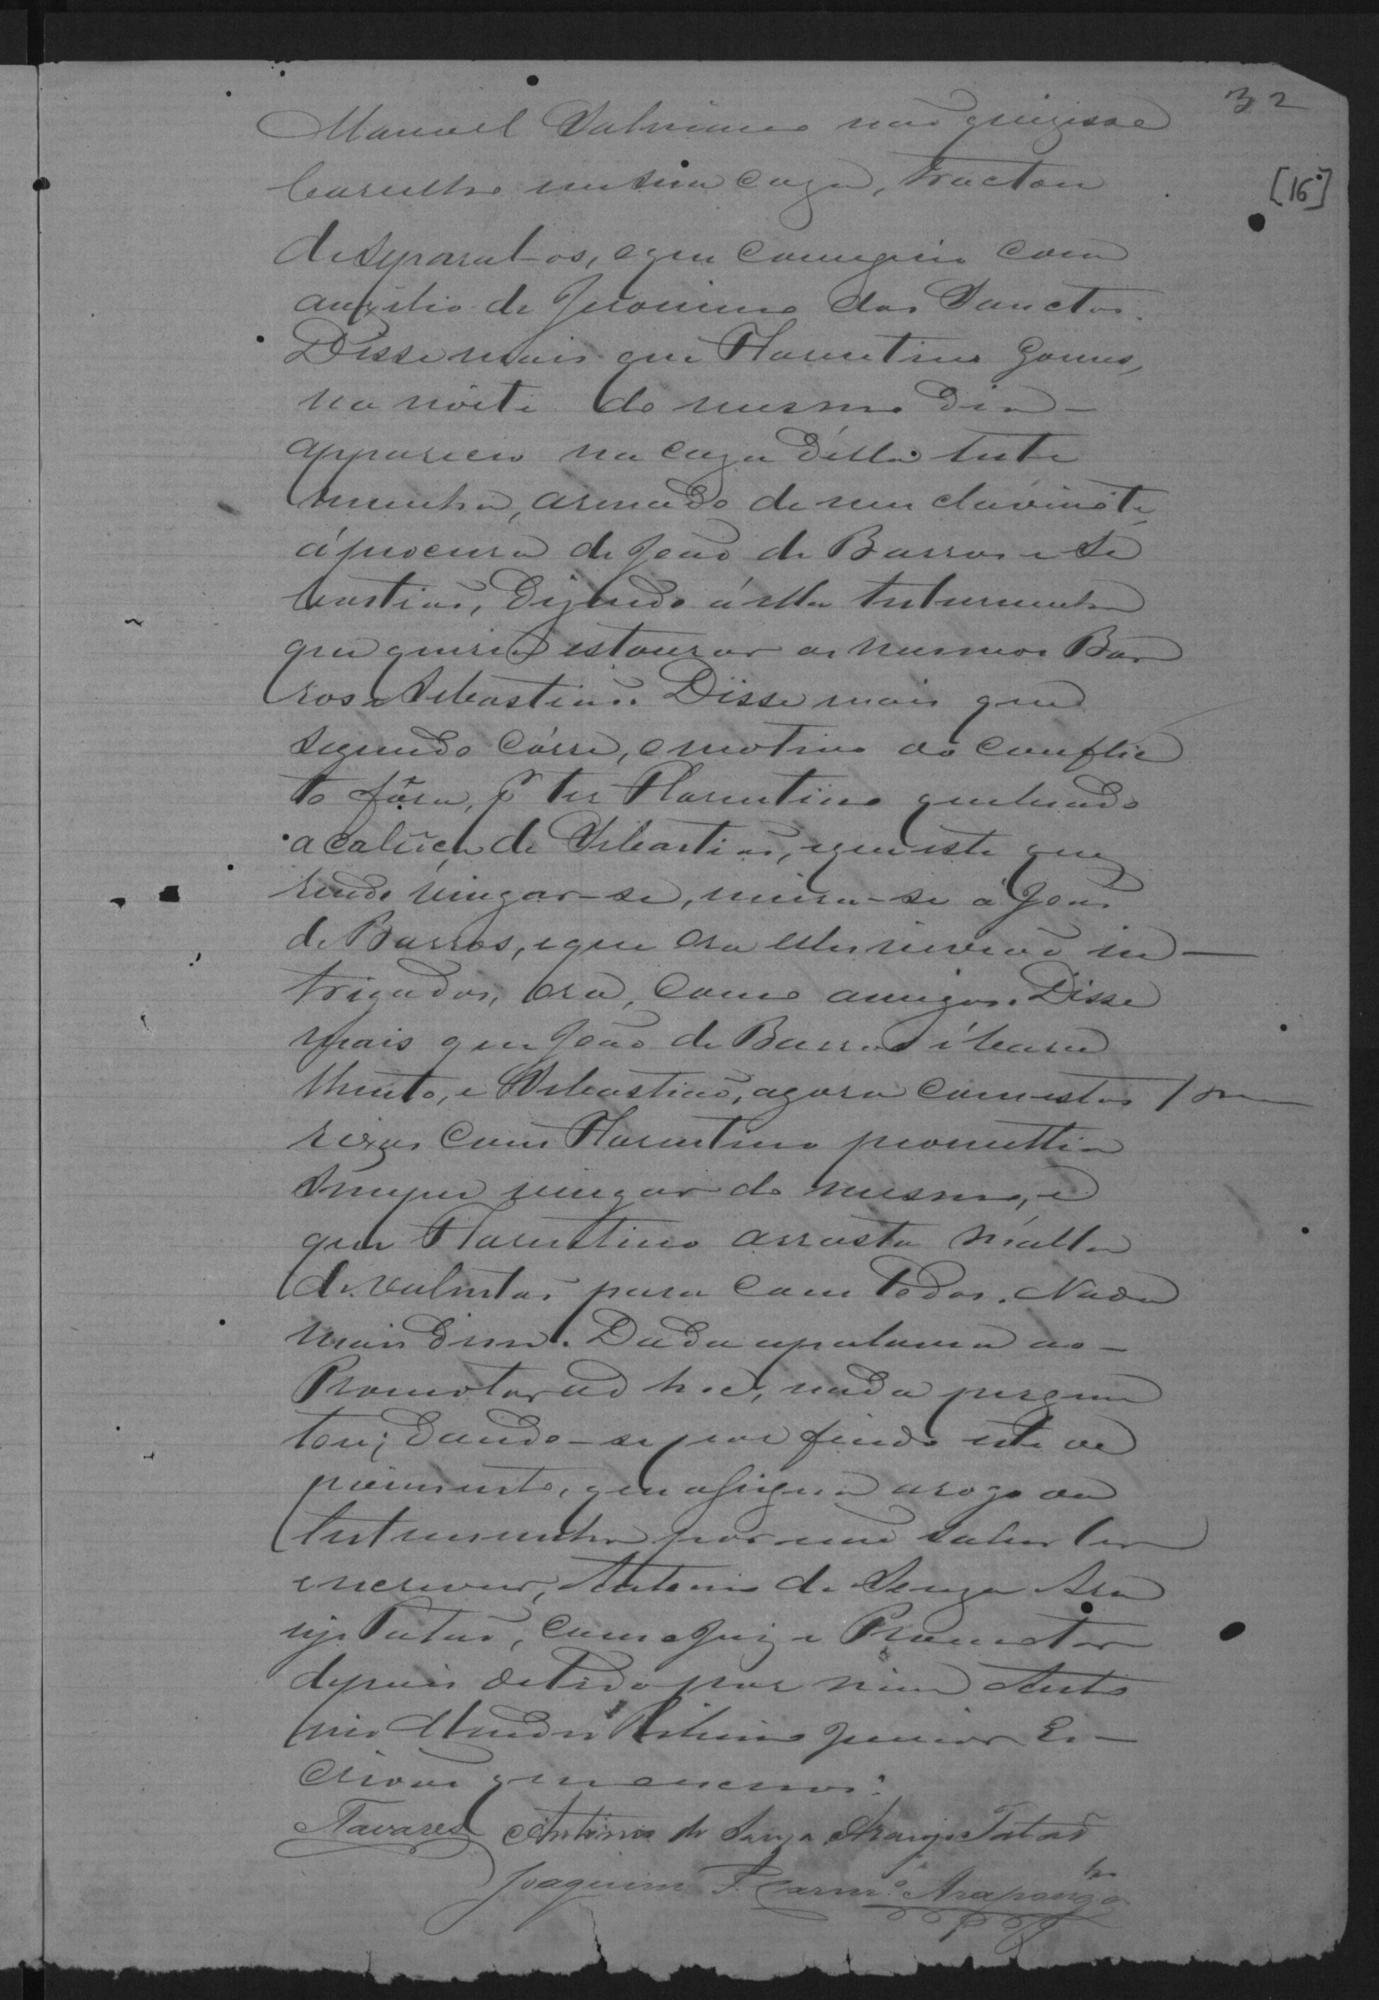 32
[16]
Manoel Salviano não quizesse
barulho em sua caza, tractou
de separal-os, o que conseguio com
auxilio de Jeronimo dos Sanctos.
Disse mais que Florentino Gomes,
na noite do mesmo dia
appareceu na caza d'ella teste
munha, armado de um clavinóte,
á procura de João de Barros e Se
bastião, dizendo á ella testemunha
que queria estourar os mesmos Bar
ros e Sebastião. Disse mais que
segundo córre, o motivo do conflic
to fôra, p.r ter Florentino quebrado
a cabêça de Sebastião, e que este que
rendo vingar-se, unira-se a João
de Barros, e que ora elles viverão in
trigados, ora, como amigos. Disse
mais que João de Barros é baru
lhento, e Sebastião, agora com estas
rixas com Florentino promettia
sempre vingar do mesmo, e
que Florentino arrosta malta
de valentão para com todos. Nada
mais disse. Dada a palavra ao
Promotor ad hoc, nada pergun
tou; dando-se por findo este de
poimento, que assigna a rogo da
testemunha por não saber ler
e escrever, Antonio de Souza Ara
ujo Tatão, com o Juiz e Promotor
depois de lido por mim Anto
nio Ribeiro Junior Es
crivão que escrevi.
Tavares Antonio de Souza Araujo Tatão
Joaquim F. Carm.o Araponga